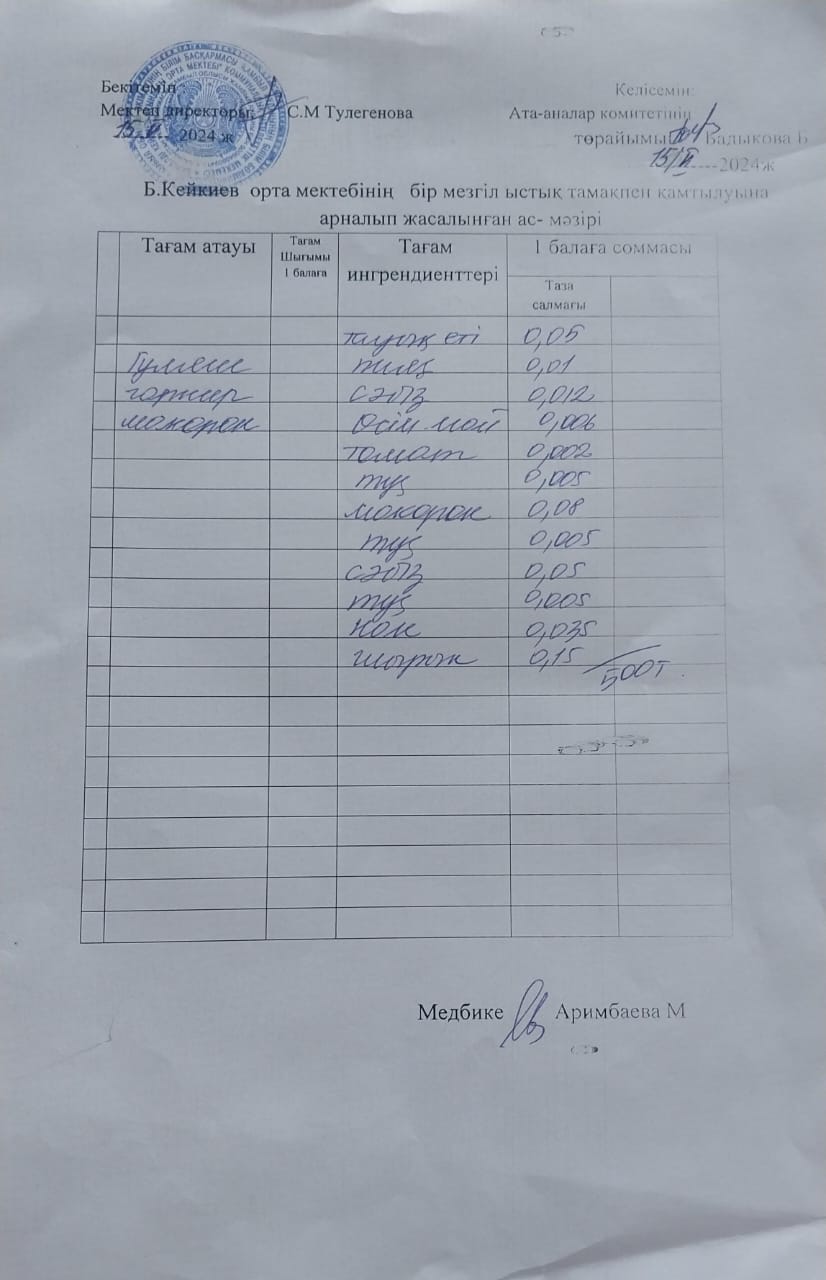 Бекітемін:
Мектеп директоры: С.М Тулегенова
15.VI 2024 ж
Келісемін:
Ата-аналар комитетінің
төрайымы Бадыкова Б
15/VI-----2024ж
Б.Кейкиев орта мектебінің бір мезгіл ыстық тамақпен қамтылуына
арналып жасалынған ас- мәзірі
Тағам атауы
Тағам Шығымы 1 балаға
Тағам ингрендиенттері
1 балаға соммасы
Таза салмағы
тауық еті 0,05
Гуляш пияз 0,01
гарнир сәбіз 0,012
макарон Өсім май 0,006
томат 0,002
тұз 0,005
макарон 0,08
тұз 0,005
сәбіз 0,05
тұз 0,005
нан 0,035
шырын 0,15 /500т.
Медбике Аримбаева М